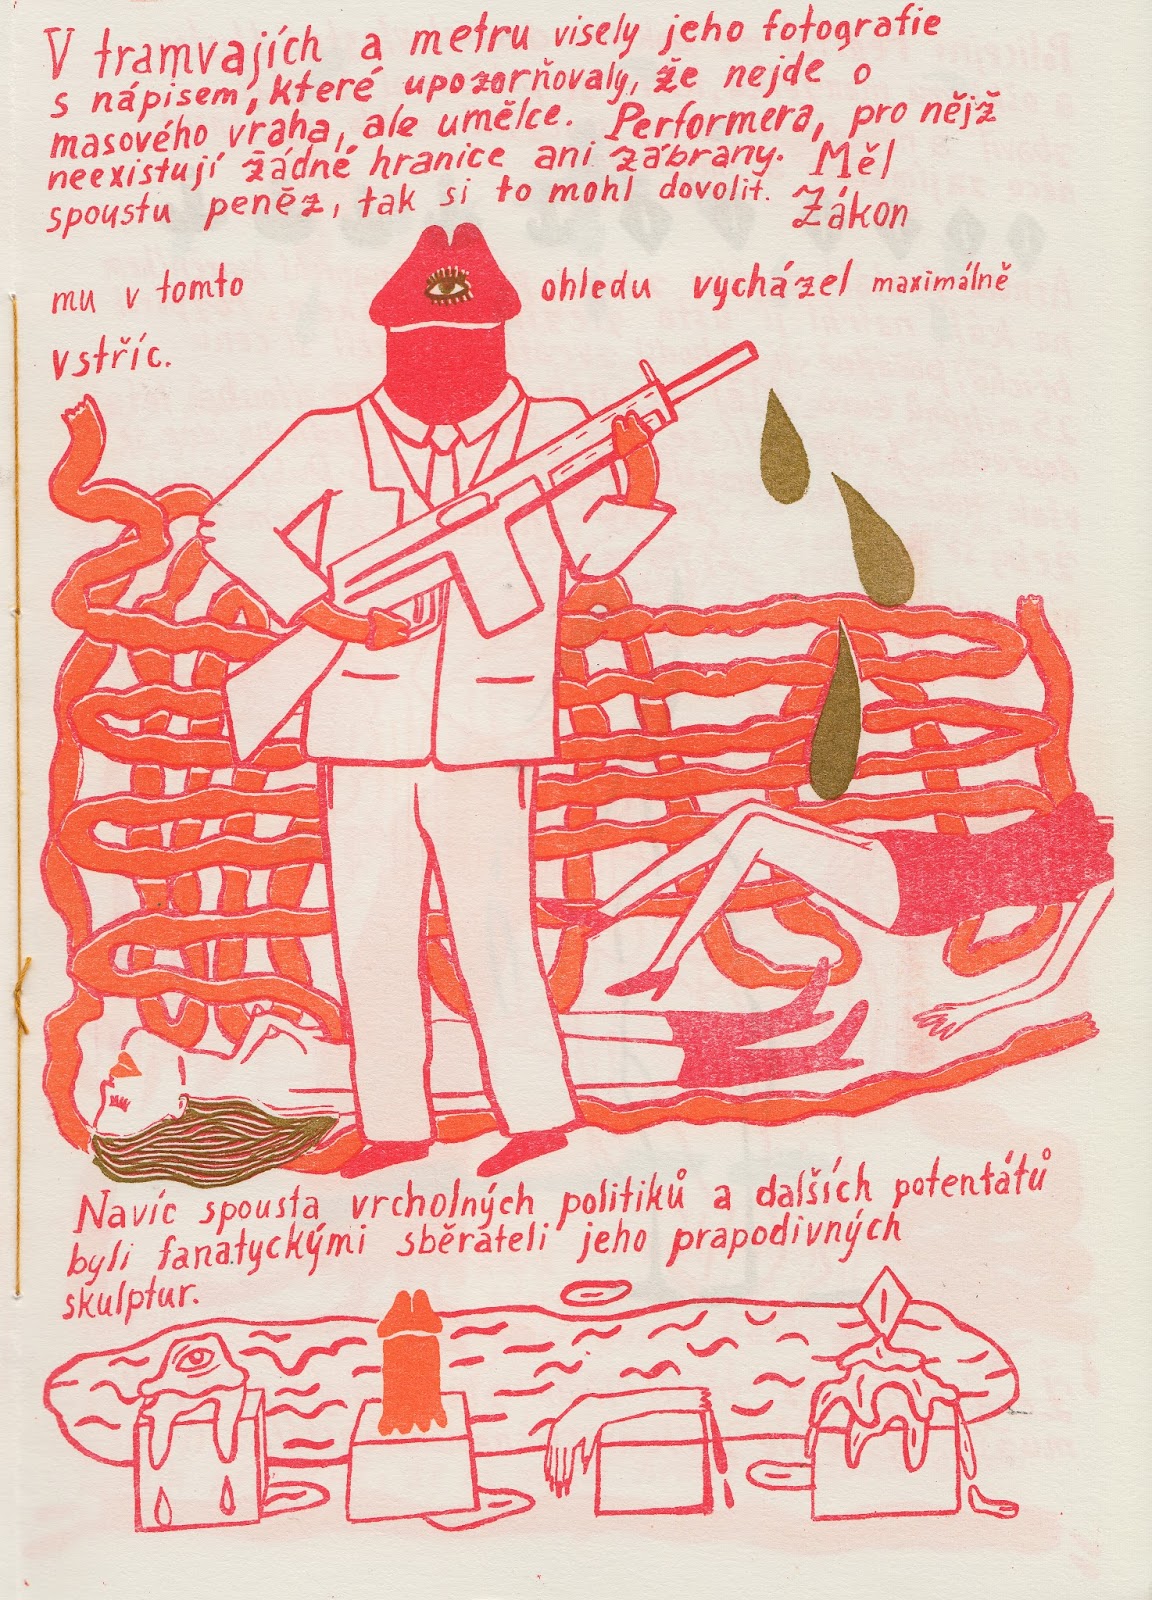 V tramvajích a metru visely jeho fotografie
s nápisem, které upozorňovaly, že nejde o
masového vraha, ale umělce. Performera, pro nějž
neexistují žádné hranice ani zábrany. Měl
spoustu peněz, tak si to mohl dovolit. Zákon
mu v tomto ohledu vycházel maximálně
vstříc.
Navíc spousta vrcholných politiků a dalších potentátů
byli fanatyckými sběrateli jeho prapodivných
skulptur.